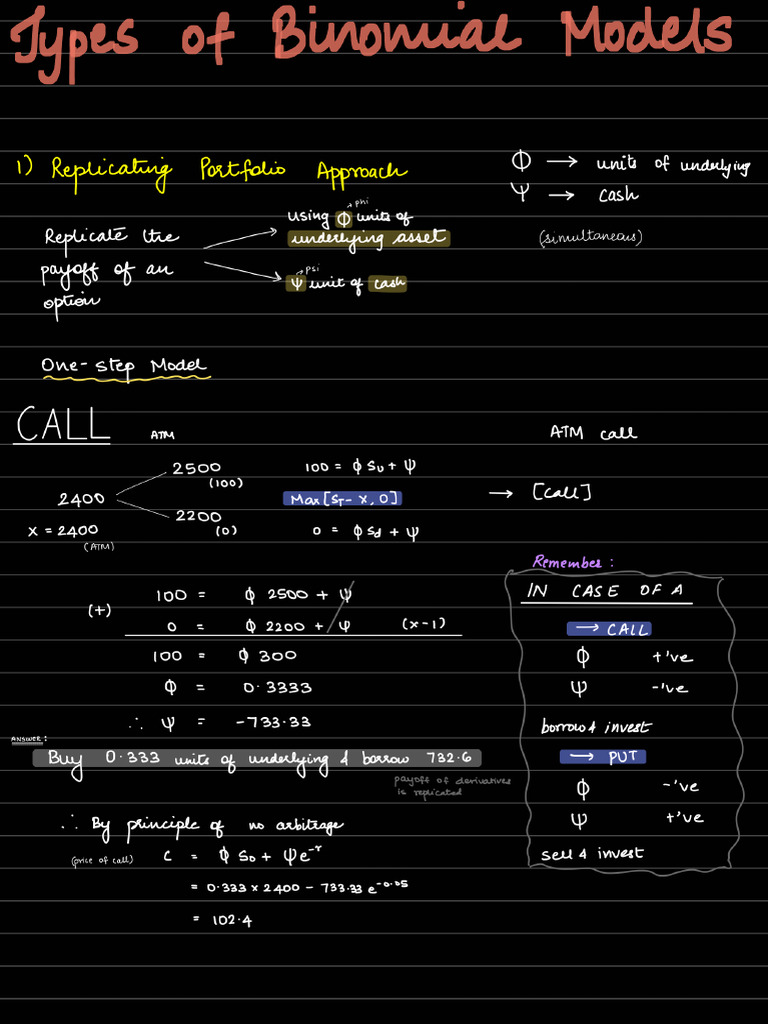 Types of Binomial Models
1) Replicating Portfolio Approach
Φ → units of underlying
Ψ → cash
(simultaneous)
Replicate the
payoff of an
option
→ phi
using Φ units of
underlying asset
→ psi
Ψ unit of cash
One-step Model
CALL
ATM
ATM call
2500
(100)
2400
2200
(0)
x = 2400
(ATM)
100 = Φ Su + Ψ
Max[ST - x, 0]
0 = Φ Sd + Ψ
→ [call]
(+)
100 = Φ 2500 + Ψ
0 = Φ 2200 + Ψ (x-1)
100 = Φ 300
Φ = 0.3333
∴ Ψ = -733.33
ANSWER:
Buy 0.333 units of underlying & borrow 732.6
payoff of derivatives
is replicated
∴ By principle of no arbitrage
(price of call) C = Φ S0 + Ψe^-r
= 0.333 x 2400 - 733.33 e^-0.05
= 102.4
Remember:
IN CASE OF A
→ CALL
Φ +'ve
Ψ -'ve
borrow & invest
→ PUT
Φ -'ve
Ψ +'ve
sell & invest